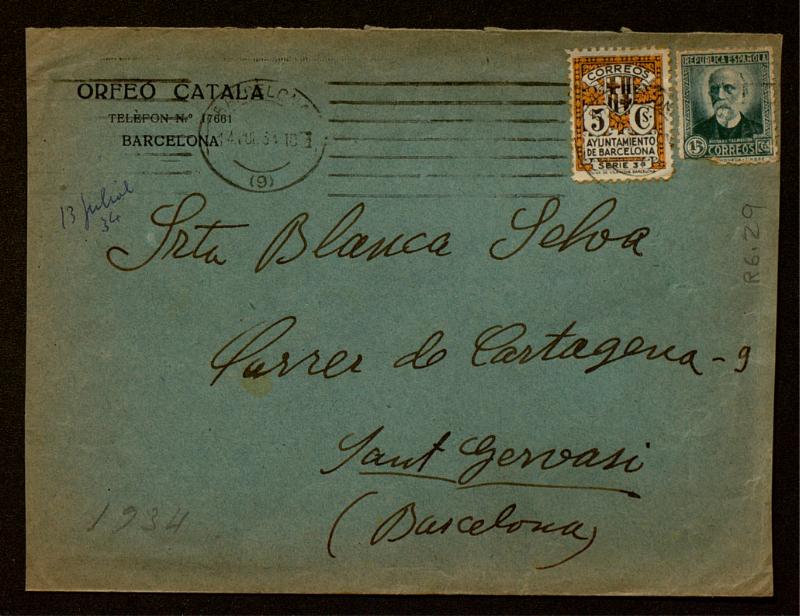 ORFEÓ CATALÀ
TELÈFON N.º 17681
BARCELONA
BARCELONA
(9)
13 juliol
34
CORREOS
5 Cs.
AYUNTAMIENTO
DE BARCELONA
SERIE 3ª
REPUBLICA ESPAÑOLA
15 CORREOS Cts
R6.29
Srta Blanca Selva
Carrer de Cartagena - 9
Sant Gervasi
(Barcelona)
1934